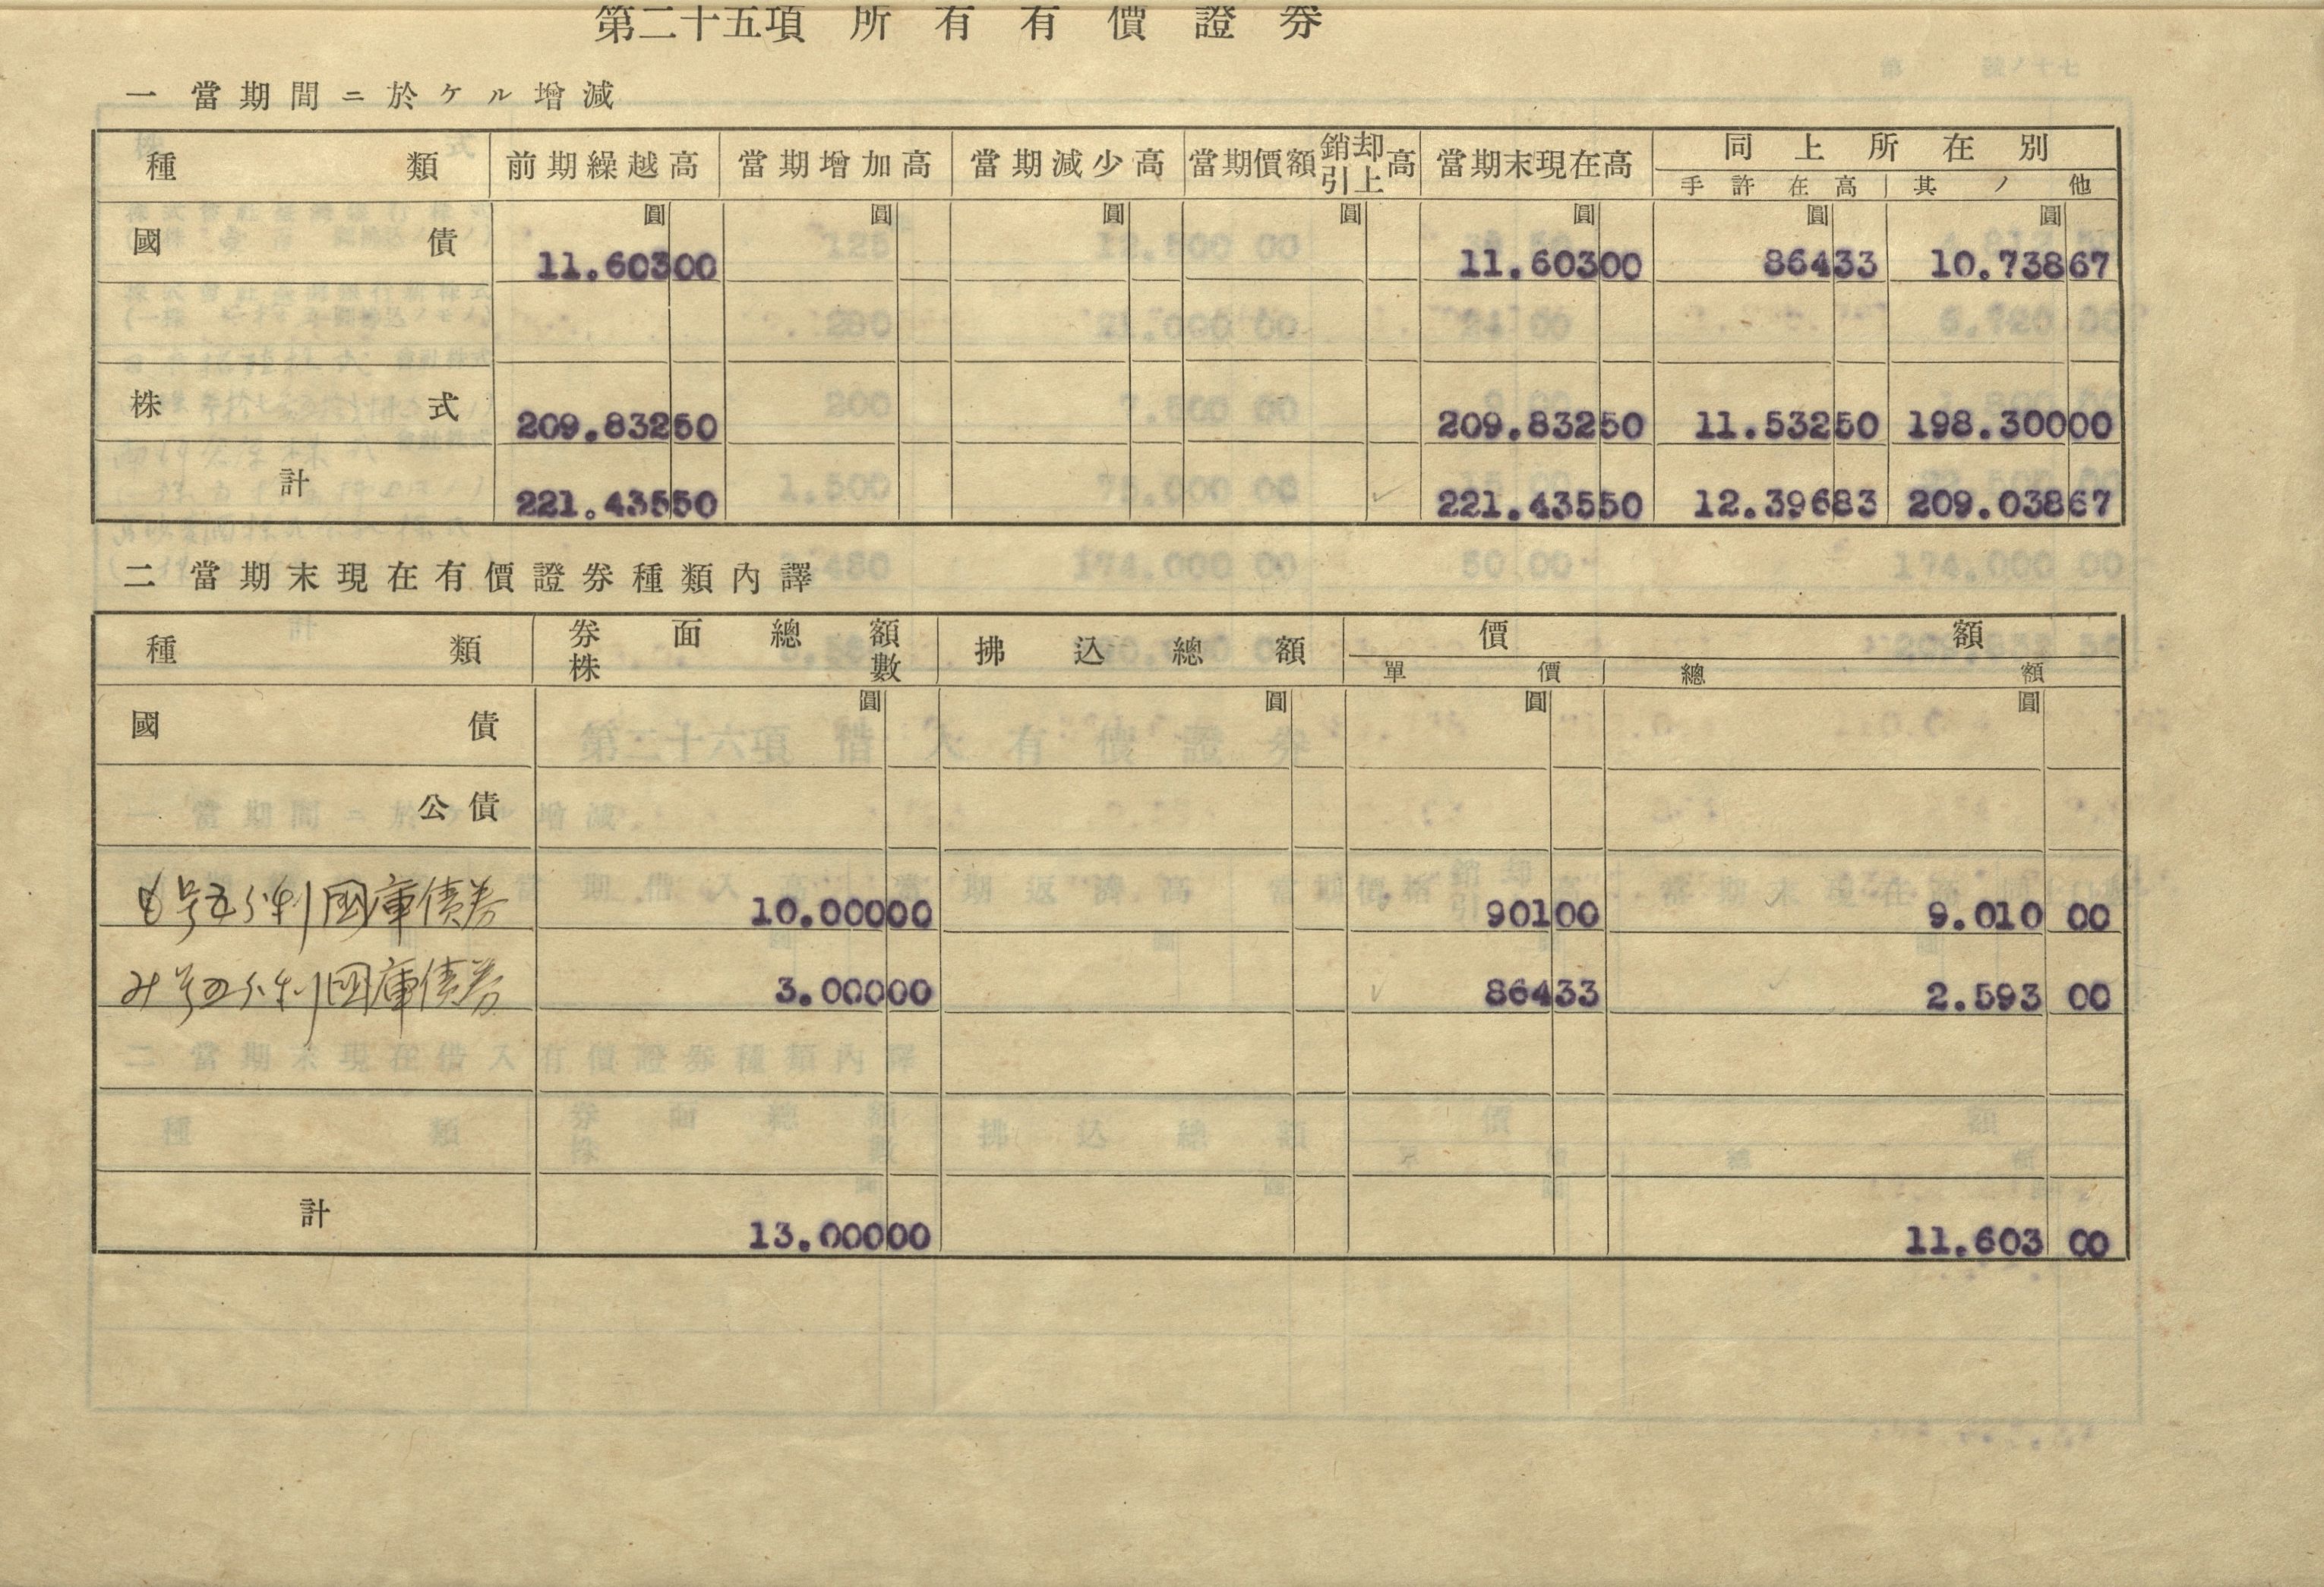 第二十五項 所有有價證券
一 當期間ニ於ケル增減
種類 前期繰越高 當期增加高 當期減少高 當期價額銷却引上高 當期末現在高 同上所在別
手許在高 其ノ他
圓 圓 圓 圓 圓 圓 圓
國債 11.603 00 11.603 00 864 33 10.738 67
株式 209.832 50 209.832 50 11.532 50 198.300 00
計 221.435 50 221.435 50 12.396 83 209.038 67
二 當期末現在有價證券種類內譯
種類 券面總額 株數 拂込總額 價額
單價 總額
圓 圓 圓 圓
國債
公債
號五分利國庫債券 10.000 00 901 00 9.010 00
み号五分利國庫債券 3.000 00 864 33 2.593 00
計 13.000 00 11.603 00